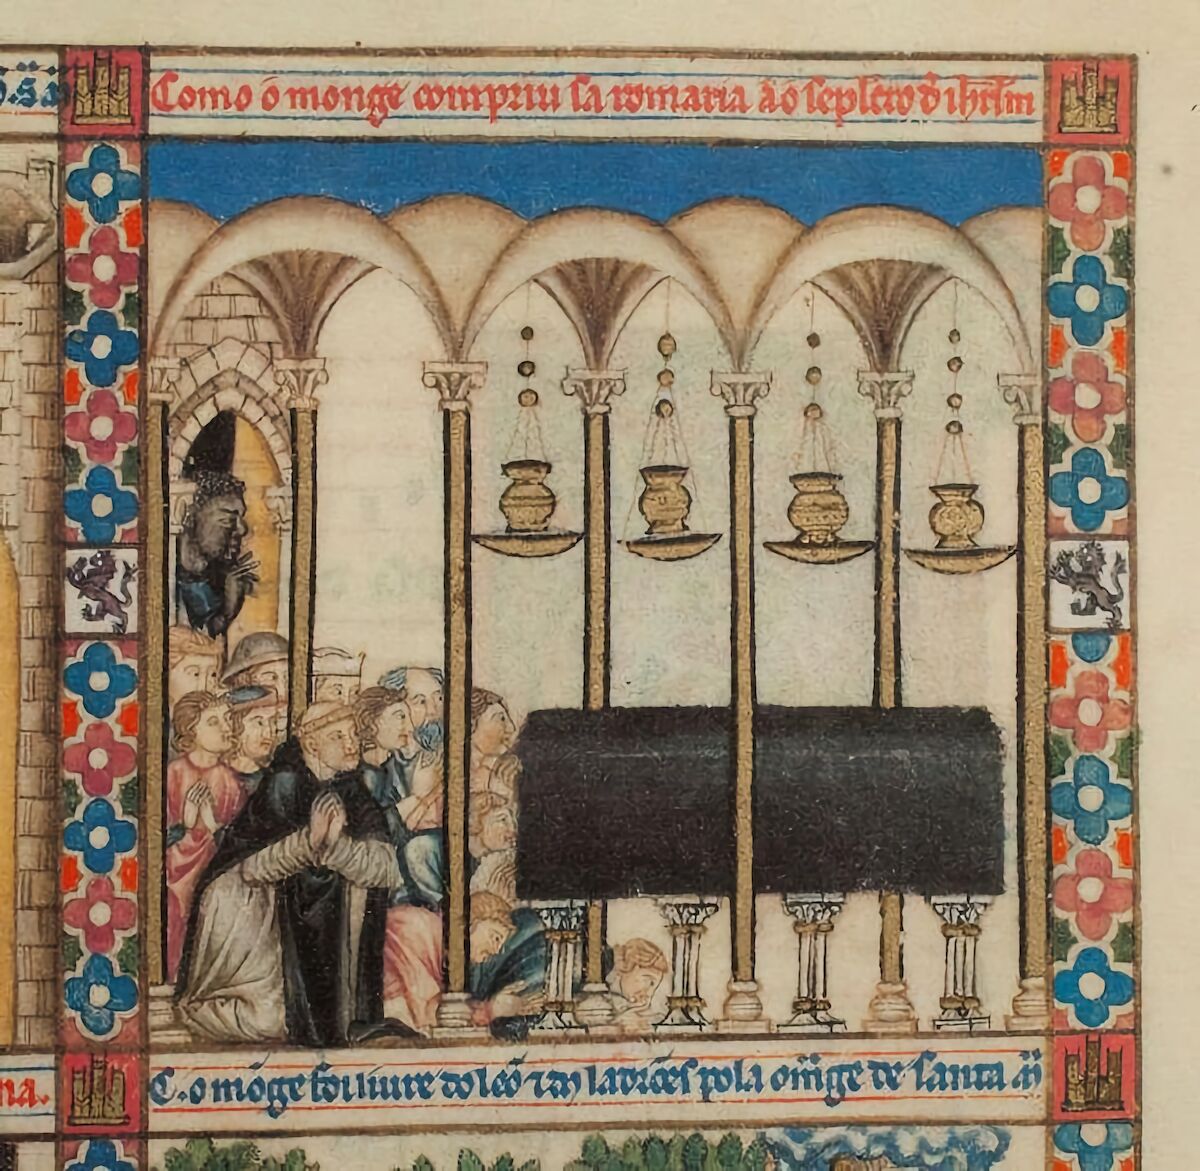 Como o monge compriu sa romaria ao seplcro d ihrlm
C. o mõge foi liure do leõ τ dos ladrões pola omage de santa mª
na.